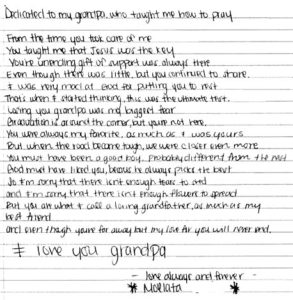 Dedicated to my grandpa, who taught me how to pray
From the time you took care of me
You taught me that Jesus was the key
You're unending gift of support was always there
Even though there was little, but you continued to share.
I was very mad at God for putting you to rest
That's when I started thinking, this was the ultimate test.
Losing you grandpa was my biggest fear
Graduation is around the corner, but you're not here.
You were always my favorite, as much as I was yours
But when the road became tough, we were closer even more
You must have been a good boy, probably different from the rest
God must have liked you, because he always picks the best
So I'm sorry that there isn't enough tears to shed
and I'm sorry that there isn't enough flowers to spread
But you are what I call a loving grandfather, as much as my
best friend
and even though you're far away but my love for you will never end.
I love you grandpa
- love always and forever -
* *